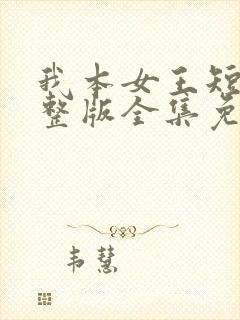 我本女王短
整版全集免
韦慧